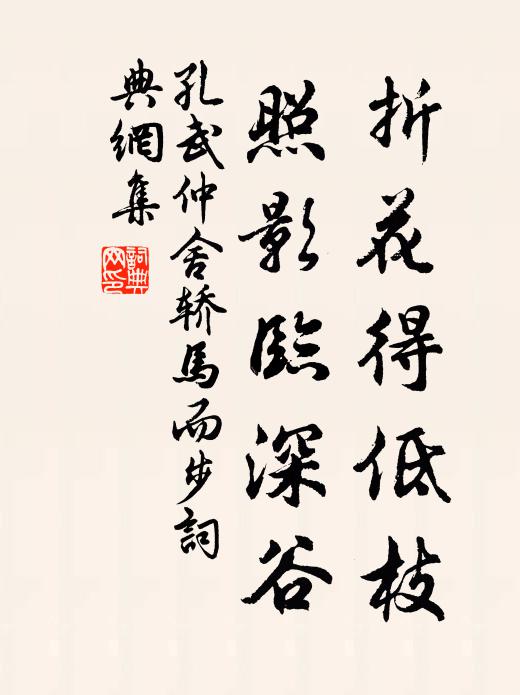 折花得低枝
照影臨深谷
孔武仲舍轿馬而步詞
典網集
詞典網印